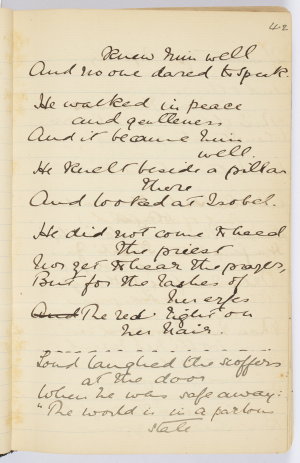 42
Knew him well
And no one dared to speak.
He walked in peace
and gentleness
And it became him
well.
He knelt beside a pillar
there
And looked at Isobel.
He did not come to heed
the priest
Nor yet to hear the prayer,
But for the lashes of
her eyes
And The red light on
her hair.
Loud laughed the scoffers
at the door
When he was safe away:
"The world is in a parlous
state